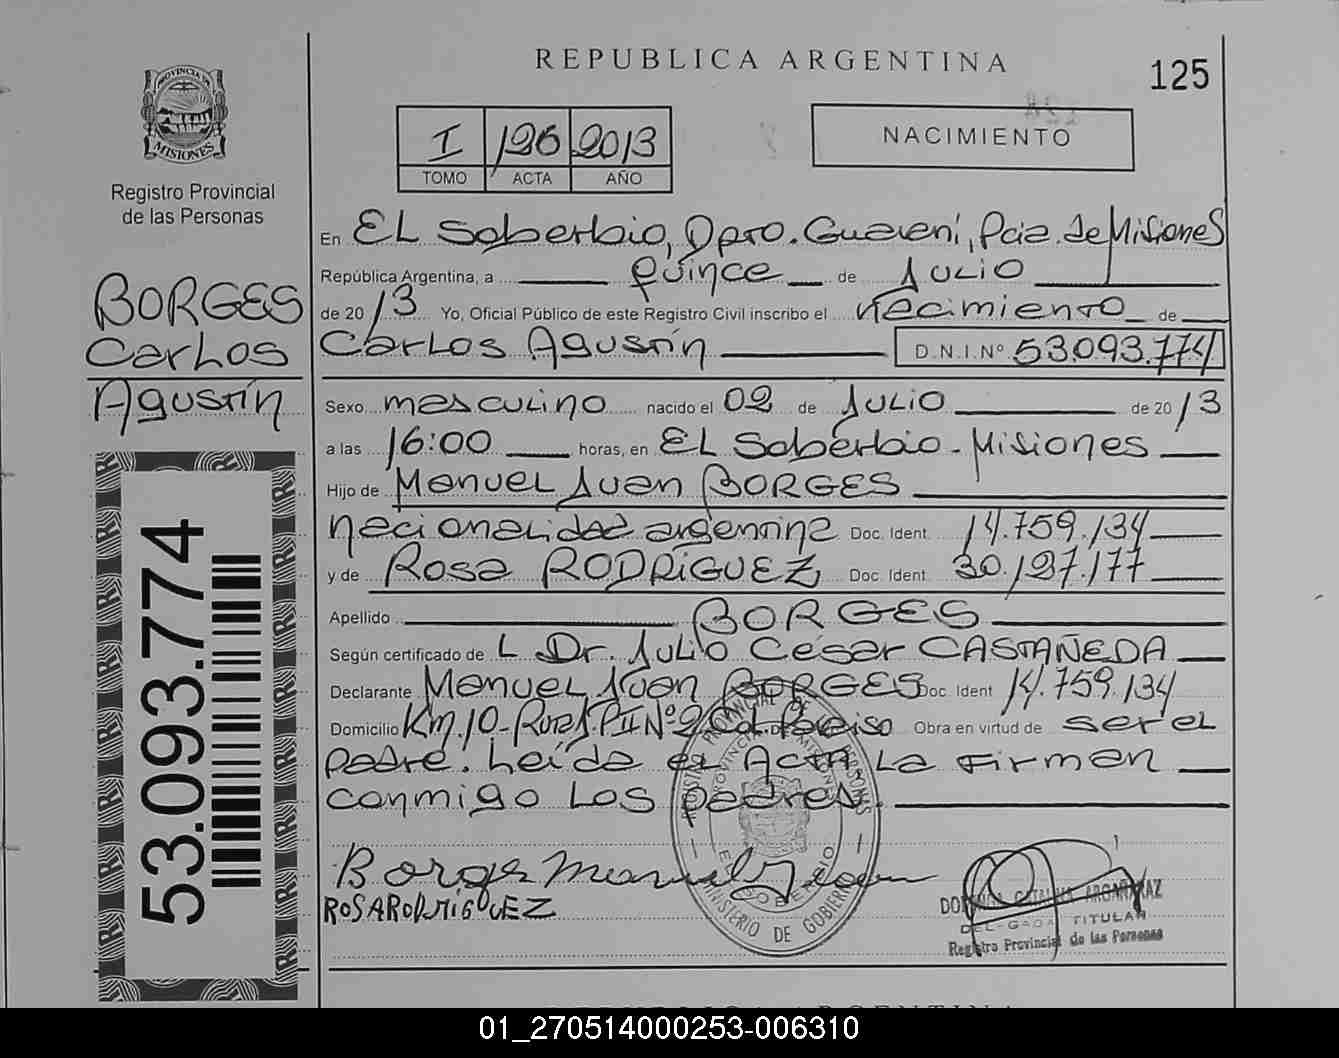 REPUBLICA ARGENTINA
125
PROVINCIA DE
MISIONES
Registro Provincial
de las Personas
I 126 2013
TOMO ACTA AÑO
NACIMIENTO
En EL Soberbio, Dpto. Guaraní, Pcia. de Misiones
República Argentina, a Quince de Julio
de 2013 Yo, Oficial Público de este Registro Civil inscribo el nacimiento de
Carlos Agustín D.N.I.Nº 53.093.774
BORGES
Carlos
Agustín
53.093.774
Sexo masculino nacido el 02 de Julio de 2013
a las 16:00 horas, en EL Soberbio - Misiones
Hijo de Manuel Juan BORGES
nacionalidad argentina Doc. Ident. 14.759.134
y de Rosa RODRÍGUEZ Doc. Ident. 30.197.177
Apellido BORGES
Según certificado de L Dr. Julio César CASTAÑEDA
Declarante Manuel Juan BORGES Doc. Ident 14.759.134
Domicilio Km.10-Ruta P.II Nº 2 Col. Paraiso Obra en virtud de ser el
padre. Leída el Acta La Firman
conmigo Los padres.
Borges Manuel Juan
ROSA RODRIGUEZ
REGISTRO PROVINCIAL DE LAS PERSONAS
PROVINCIA DE MISIONES
EL SOBERBIO
MINISTERIO DE GOBIERNO
CATALINA
DELEGADA TITULAR
Registro Provincial de las Personas
REPUBLICA ARGENTINA
01_270514000253-006310